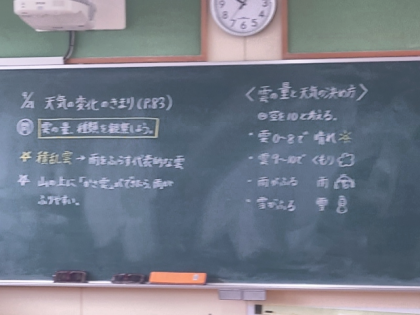 天気の変化のきまり(P.83)
雲の量、種類を観察しよう。
積乱雲→雨をふらす代表的な雲
山の上に「かさ雲」ができたら、雨が
ふりやすい。
〈雲の量と天気の決め方〉
空を10と考える。
・雲0~8で 晴れ
・雲9~10で くもり
・雨がふる 雨
・雪がふる 雪